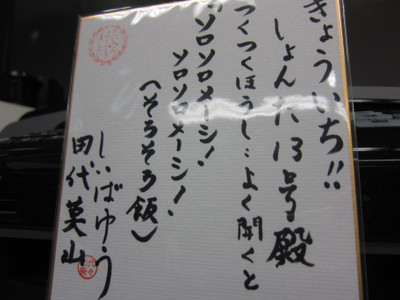 きょういち!!
しょんたパ13号殿
つくつくほうし…よく聞くと
"ソロソロメーシ!
ソロソロメーシ!"
(そろそろ飯)
しいばゆう
田代英山